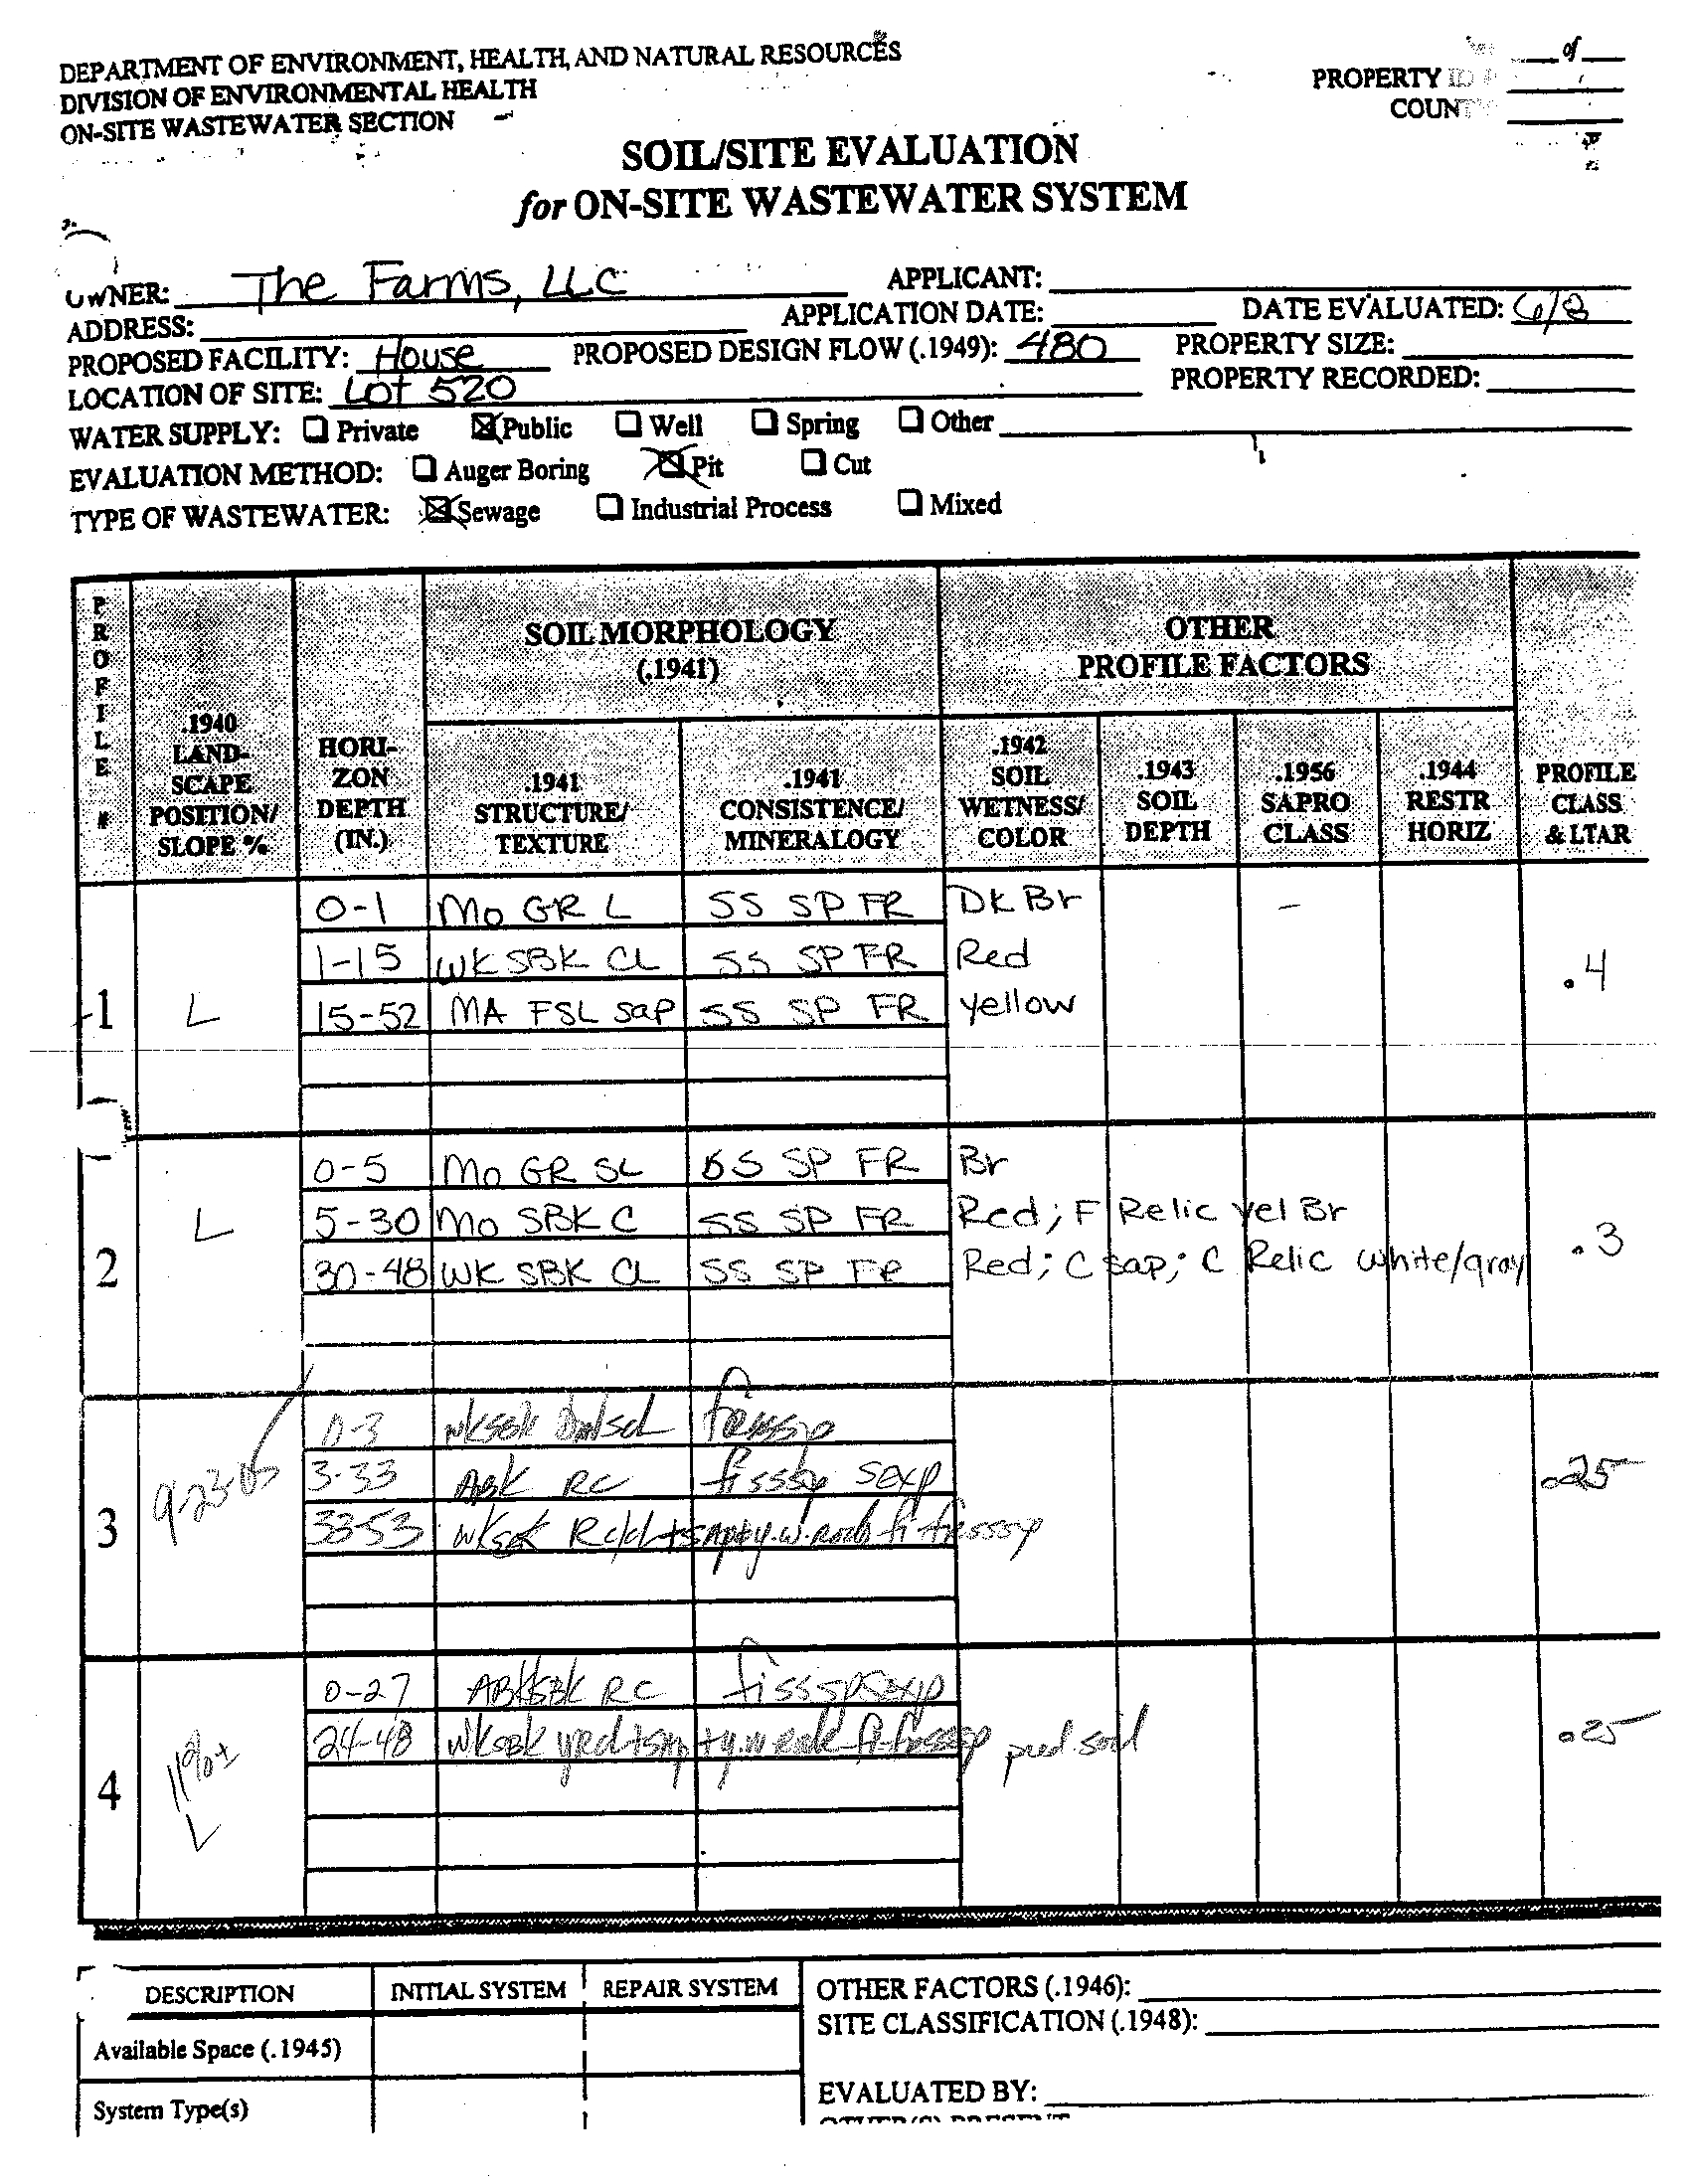 of
DEPARTMENT OF ENVIRONMENT, HEALTH, AND NATURAL RESOURCES
DIVISION OF ENVIRONMENTAL HEALTH
ON-SITE WASTEWATER SECTION
PROPERTY ID #
COUNTY
SOIL/SITE EVALUATION
for ON-SITE WASTEWATER SYSTEM
OWNER: The Farms, LLC APPLICANT:
ADDRESS: APPLICATION DATE: DATE EVALUATED: 6/8
PROPOSED FACILITY: House PROPOSED DESIGN FLOW (.1949): 480 PROPERTY SIZE:
LOCATION OF SITE: Lot 520 PROPERTY RECORDED:
WATER SUPPLY: Private Public Well Spring Other
EVALUATION METHOD: Auger Boring Pit Cut
TYPE OF WASTEWATER: Sewage Industrial Process Mixed
PROFILE #
.1940 LAND-SCAPE POSITION/ SLOPE %
HORI-ZON DEPTH (IN.)
SOIL MORPHOLOGY (.1941)
.1941 STRUCTURE/ TEXTURE
.1941 CONSISTENCE/ MINERALOGY
OTHER PROFILE FACTORS
.1942 SOIL WETNESS/ COLOR
.1943 SOIL DEPTH
.1956 SAPRO CLASS
.1944 RESTR HORIZ
PROFILE CLASS & LTAR
1 L .4
0-1 Mo GR L SS SP FR Dk Br -
1-15 WK SBK CL SS SP FR Red
15-52 MA FSL sap SS SP FR yellow
2 L .3
0-5 Mo GR SL SS SP FR Br
5-30 Mo SBK C SS SP FR Red; F Relic yel Br
30-48 WK SBK CL SS SP FR Red; C sap; C Relic white/gray
3 9-23-05 .25
0-3 wksbk frsssp
3-33 ABK RC fisssp sexp
33-53 wksbk fi-frsssp
4 11%± L .25
0-27 ABK/SBK RC fisssp sexp
24-48 wksbk fi-frsssp
DESCRIPTION INITIAL SYSTEM REPAIR SYSTEM
Available Space (.1945)
System Type(s)
OTHER FACTORS (.1946):
SITE CLASSIFICATION (.1948):
EVALUATED BY:
OTHER(S) PRESENT